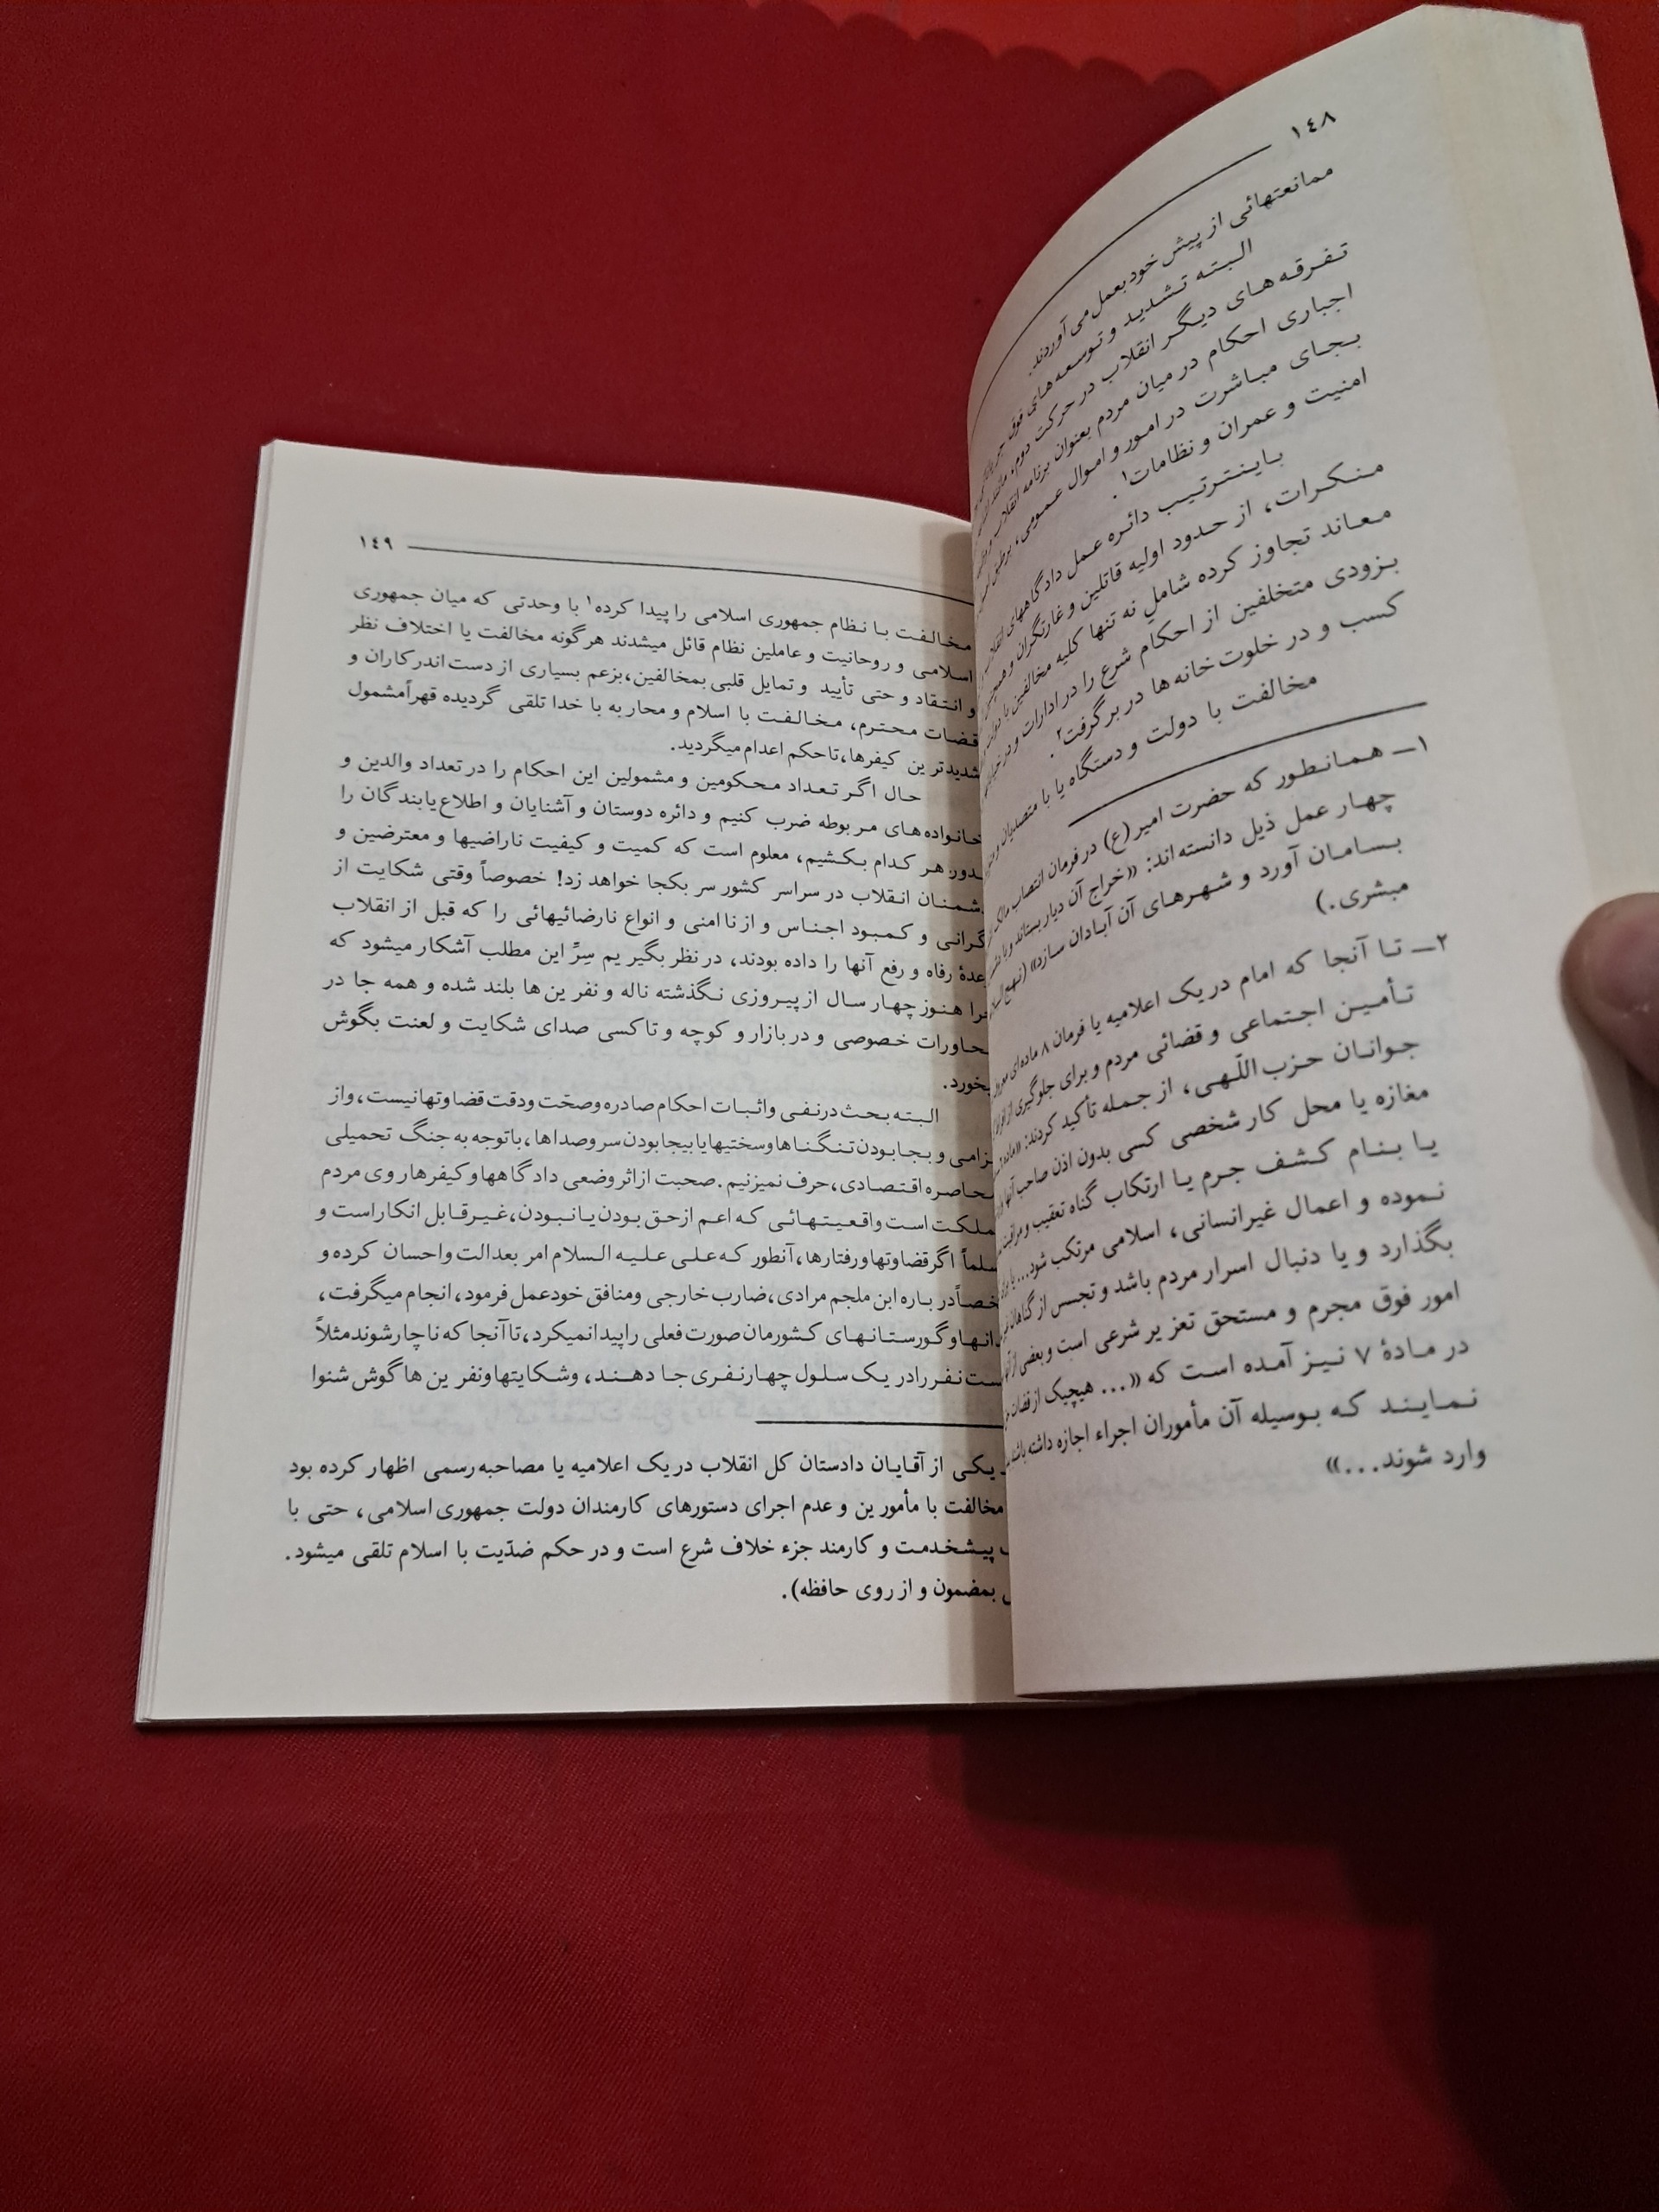 ١٤٨
ممانعتهائی از پیش خود بعمل می آوردند.
البته تشدید و توسعه های فوق
تفرقه های دیگر انقلاب در حرکت دوم، مانند
اجباری احکام در میان مردم بعنوان برنامه انقلاب و
بجای مباشرت در امور و اموال عمومی، برطبق
امنیت و عمران و نظامات۱.
باینترتیب دائره عمل دادگاههای انقلاب
منکرات، از حدود اولیه قاتلین و غارتگران و
معاند تجاوز کرده شاملِ نه تنها کلیه مخالفین با دولت
بزودی متخلفین از احکام شرع را در ادارات و در
کسب و در خلوت خانه ها در بر گرفت۲.
مخالفت با دولت و دستگاه یا با متصدیان
۱ــ همانطور که حضرت امیر (ع) در فرمان انتصاب مالک
چهار عمل ذیل دانسته اند: «خراج آن دیار بستاند و با
بسامان آورد و شهرهای آن آبادان سازد» (نهج
مبشری.)
۲ــ تا آنجا که امام در یک اعلامیه یا فرمان ۸ ماده ای
تأمین اجتماعی و قضائی مردم و برای جلوگیری از
جوانان حزب اللّهی، از جمله تأکید کردند: «ماده
مغازه یا محل کار شخصی کسی بدون اذن صاحب آنها
یا بنام کشف جرم یا ارتکاب گناه تعقیب و مراقبت
نموده و اعمال غیرانسانی، اسلامی مرتکب شود...
بگذارد و یا دنبال اسرار مردم باشد و تجسس از گناهان
امور فوق مجرم و مستحق تعزیر شرعی است و بعضی از
در مادهٔ ۷ نیز آمده است که «... هیچیک از قضات
نمایند که بوسیله آن مأموران اجراء اجازه داشته باشند
وارد شوند...»
١٤٩
مخالفت با نظام جمهوری اسلامی را پیدا کرده۱ با وحدتی که میان جمهوری
اسلامی و روحانیت و عاملین نظام قائل میشدند هرگونه مخالفت یا اختلاف نظر
و انتقاد و حتی تأیید و تمایل قلبی بمخالفین، بزعم بسیاری از دست اندرکاران و
قضات محترم، مخالفت با اسلام و محاربه با خدا تلقی گردیده قهراً مشمول
شدیدترین کیفرها، تا حکم اعدام میگردید.
حال اگر تعداد محکومین و مشمولین این احکام را در تعداد والدین و
خانواده های مربوطه ضرب کنیم و دائره دوستان و آشنایان و اطلاع یابندگان را
بدور هر کدام بکشیم، معلوم است که کمیت و کیفیت ناراضیها و معترضین و
دشمنان انقلاب در سراسر کشور سر بکجا خواهد زد! خصوصاً وقتی شکایت از
گرانی و کمبود اجناس و از ناامنی و انواع نارضائیهائی را که قبل از انقلاب
وعدهٔ رفاه و رفع آنها را داده بودند، در نظر بگیریم سِرِّ این مطلب آشکار میشود که
چرا هنوز چهار سال از پیروزی نگذشته ناله و نفرین ها بلند شده و همه جا در
محاورات خصوصی و در بازار و کوچه و تاکسی صدای شکایت و لعنت بگوش
میخورد.
البته بحث در نفی و اثبات احکام صادره و صحّت و دقت قضاوتها نیست، و از
الزامی و بجا بودن تنگناها و سختیها یا بیجا بودن سر و صداها، با توجه به جنگ تحمیلی
محاصره اقتصادی، حرف نمیزنیم. صحبت از اثر وضعی دادگاهها و کیفرها روی مردم
مملکت است واقعیتهائی که اعم از حق بودن یا نبودن، غیرقابل انکار است و
مسلماً اگر قضاوتها و رفتارها، آنطور که علی علیه السلام امر بعدالت و احسان کرده و
شخصاً در باره ابن ملجم مرادی، ضارب خارجی و منافق خود عمل فرمود، انجام میگرفت،
و گورستانهای کشورمان صورت فعلی را پیدا نمیکرد، تا آنجا که ناچار شوند مثلاً
بیست نفر را در یک سلول چهارنفری جا دهند، و شکایتها و نفرین ها گوش شنوا
یکی از آقایان دادستان کل انقلاب در یک اعلامیه یا مصاحبه رسمی اظهار کرده بود
مخالفت با مأمورین و عدم اجرای دستورهای کارمندان دولت جمهوری اسلامی، حتی با
پیشخدمت و کارمند جزء خلاف شرع است و در حکم ضدّیت با اسلام تلقی میشود.
بمضمون و از روی حافظه).